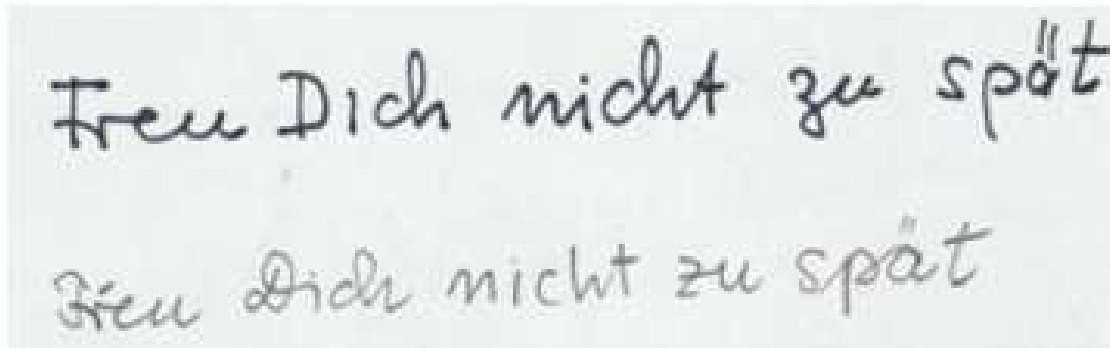 Freu Dich nicht zu spät
Freu Dich nicht zu spät